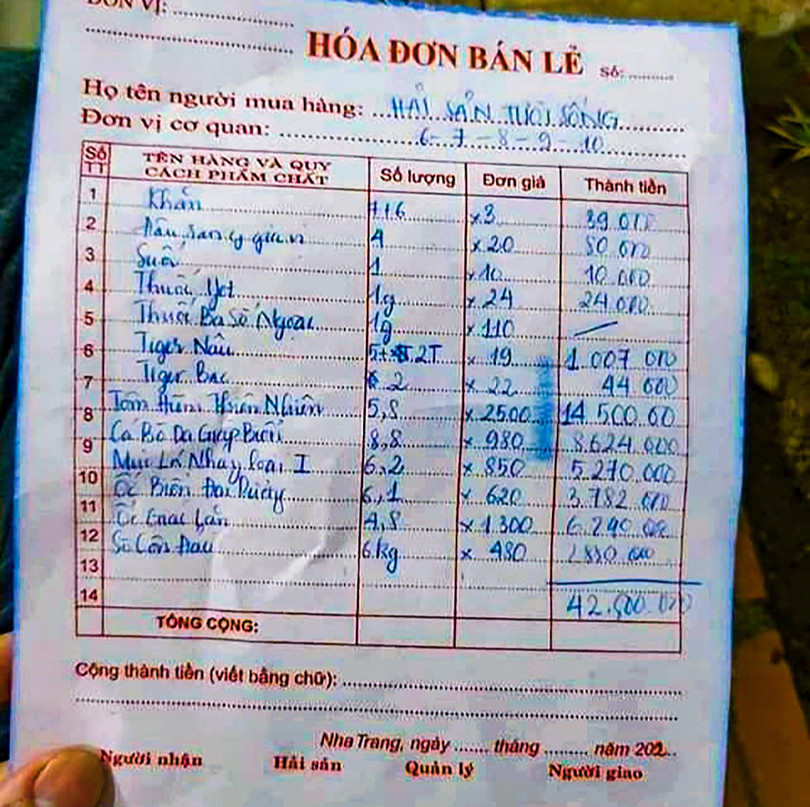 ĐƠN VỊ: ..........
HÓA ĐƠN BÁN LẺ Số: ..........
Họ tên người mua hàng: HẢI SẢN TƯƠI SỐNG
Đơn vị cơ quan: 6-7-8-9-10
Số TT TÊN HÀNG VÀ QUY CÁCH PHẨM CHẤT Số lượng Đơn giá Thành tiền
1 Khăn x 3 39.000
2 4 x 20
3 Suối 1 x 10 10.000
4 Thuốc 1g x 24 24.000
5 Thuốc Ba Số Ngoại 1g x 110
6 Tiger Nâu x 19 1.007 000
7 Tiger Bạc 2 x 22 44 000
8 Tôm Hùm Thiên Nhiên 5,8 x 2500 14 500.00
9 Cá Bò Da Giáp Biển 8,8 x 980 8.624.000
10 Mực Lá Nháy loại I 6.2 x 850 5.270.000
11 Ốc Biển 6,1 x 620 3.782 000
12 Ốc 4,8 x 1300
13 Sò Côn Đảo 6kg x 480
14 42.500.000
TỔNG CỘNG:
Cộng thành tiền (viết bằng chữ): ..........
Nha Trang, ngày ....... tháng ......... năm 202...
Người nhận Hải sản Quản lý Người giao